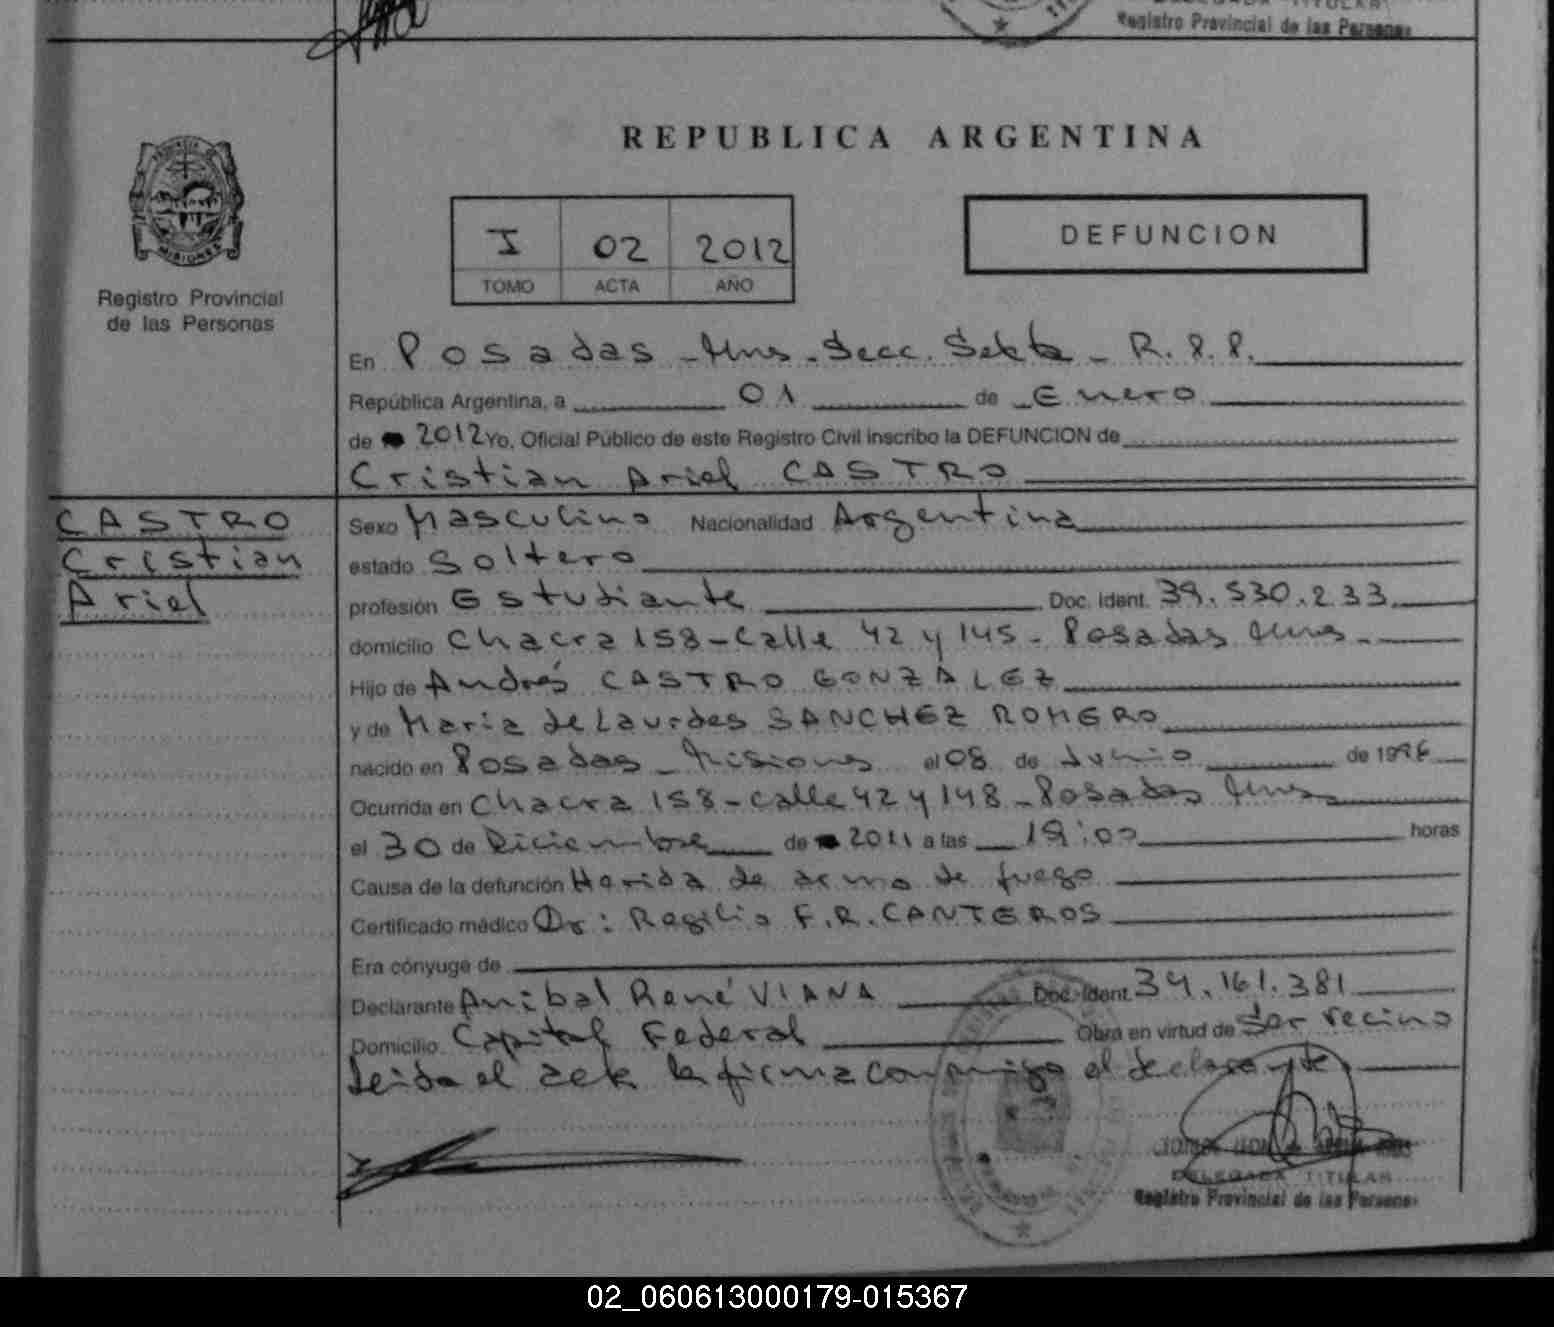 Registro Provincial de las Personas
REPUBLICA ARGENTINA
MISIONES
Registro Provincial
de las Personas
I 02 2012
TOMO ACTA AÑO
DEFUNCION
En Posadas - Mns. Secc. Sexta - R.P.P.
República Argentina, a 01 de Enero
de 2012 Yo, Oficial Público de este Registro Civil inscribo la DEFUNCION de
Cristian Ariel CASTRO
CASTRO
Cristian
Ariel
Sexo Masculino Nacionalidad Argentina
estado Soltero
profesión Estudiante Doc. Ident. 39.530.233
domicilio Chacra 158 - Calle 42 y 145 - Posadas Mns -
Hijo de Andrés CASTRO GONZÁLEZ
y de María de Lourdes SANCHEZ ROMERO
nacido en Posadas - Misiones el 08 de Junio de 1996
Ocurrida en Chacra 158 - Calle 42 y 148 - Posadas Mns
el 30 de Diciembre de 2011 a las 19:00 horas
Causa de la defunción Herida de arma de fuego
Certificado médico Dr: Rogilio F.R. CANTEROS
Era cónyuge de
Declarante Anibal René VIANA Doc. Ident. 34.161.381
Domicilio Capital Federal Obra en virtud de Ser vecino
Leida el acta la firma conmigo el declarante
DELEGADA TITULAR
Registro Provincial de las Personas
02_060613000179-015367